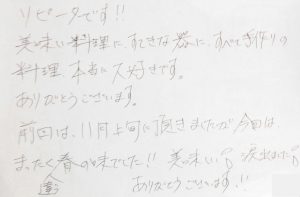 リピーターです!!
美味い料理に、すてきな器に、すべて手作りの
料理、本当に大好きです。
ありがとうございます。
前回は、11月上旬に頂きましたが今回は、
まったく違う春の味でした!! 美味い♪ 涙出ました♪
ありがとうございます!!